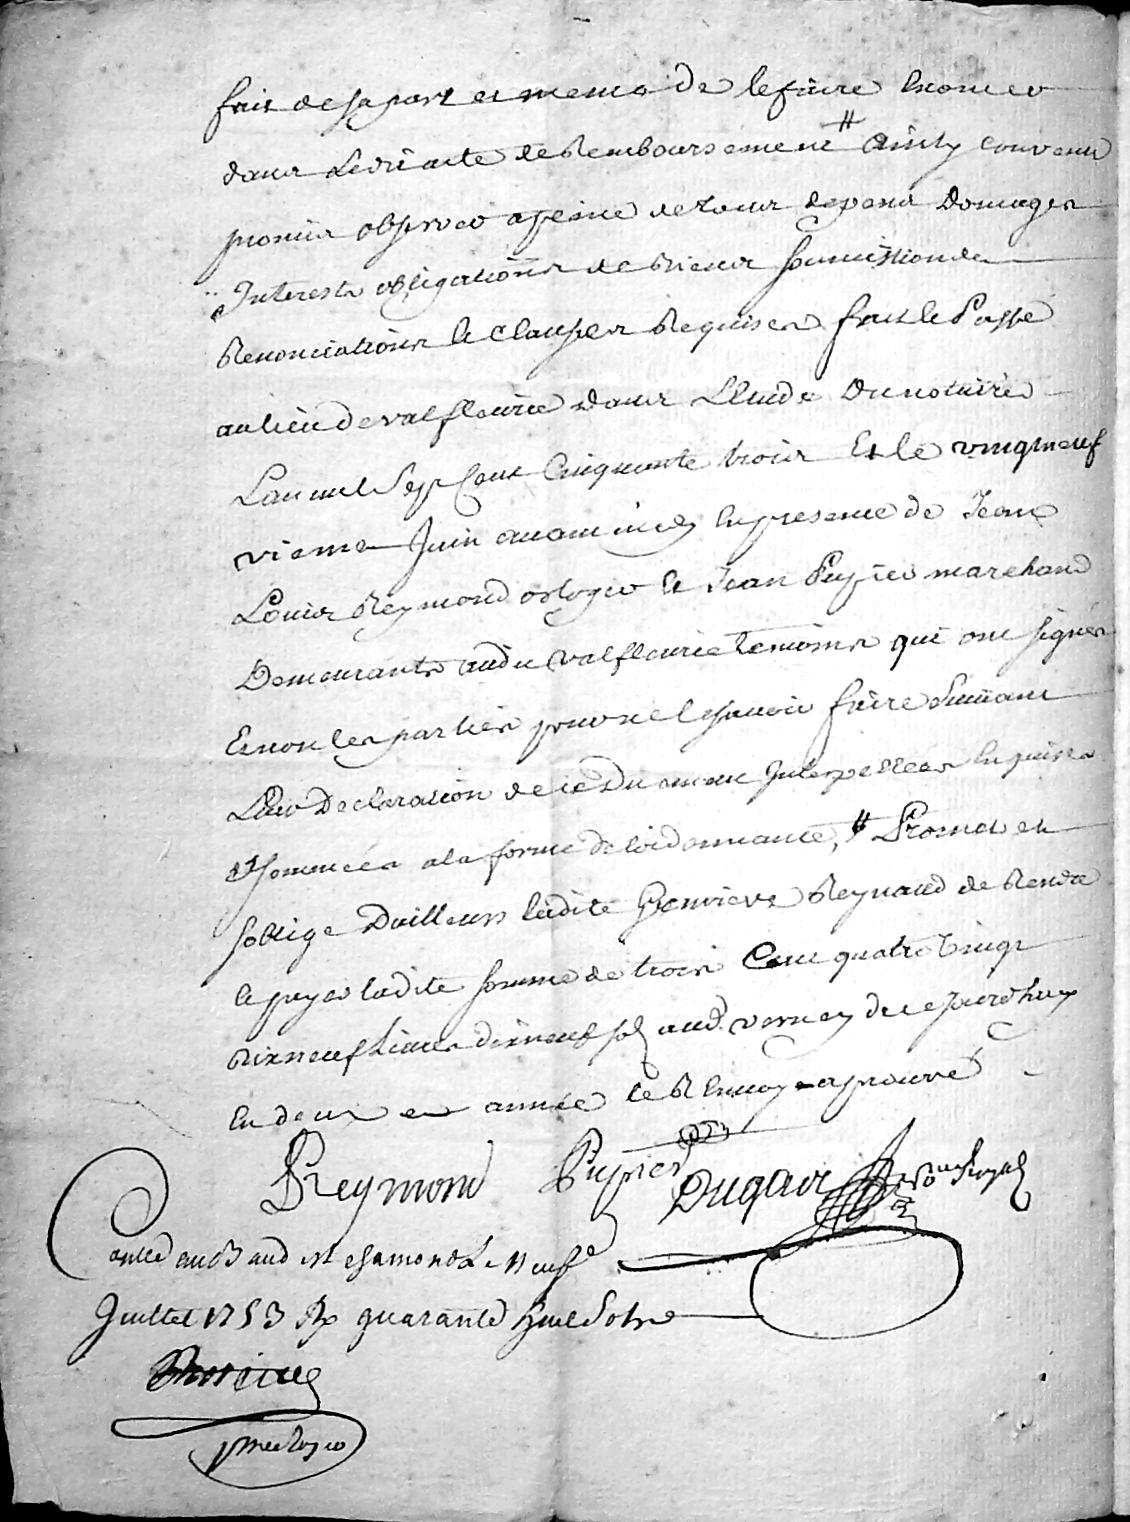 fait de sa part et meme de le faire Enoncer
dans Ledit acte de Remboursement # ainsy convenu
promis observer a peine de tous depens Domages
Interests obligations de Biens soumissions
Renonciations & clauses Requises fait & Passé
au lieu de valfleurie dans L'Etude du notaire
L'an mil sept Cent Cinquante trois Et le vingneuf
vieme Juin avant midy En presence de Jean
Louis Reymond orloger & Jean Pupier marchand
Demeurants audit valfleurie temoins qui ont signés
Et non les parties pour ne le sçavoir faire suivant
Leur Declaration de ce Dument Interpellées Enquises
& sommées a la forme de l'ordonnance, # Promet et
s'oblige D'ailleurs ladite Genvieve Reynaud de Rendre
& payer ladite somme de trois Cent quatre vingt
dixneuf Livres dixneuf sols aud. verney de ce jourdhuy
En deux années le Renvoy approuvé
Reymond Pupier Dugas No.re Royal
Contlé au B. aud St chamond Le Neuf
Juillet 1753 Rx quarante huit sols